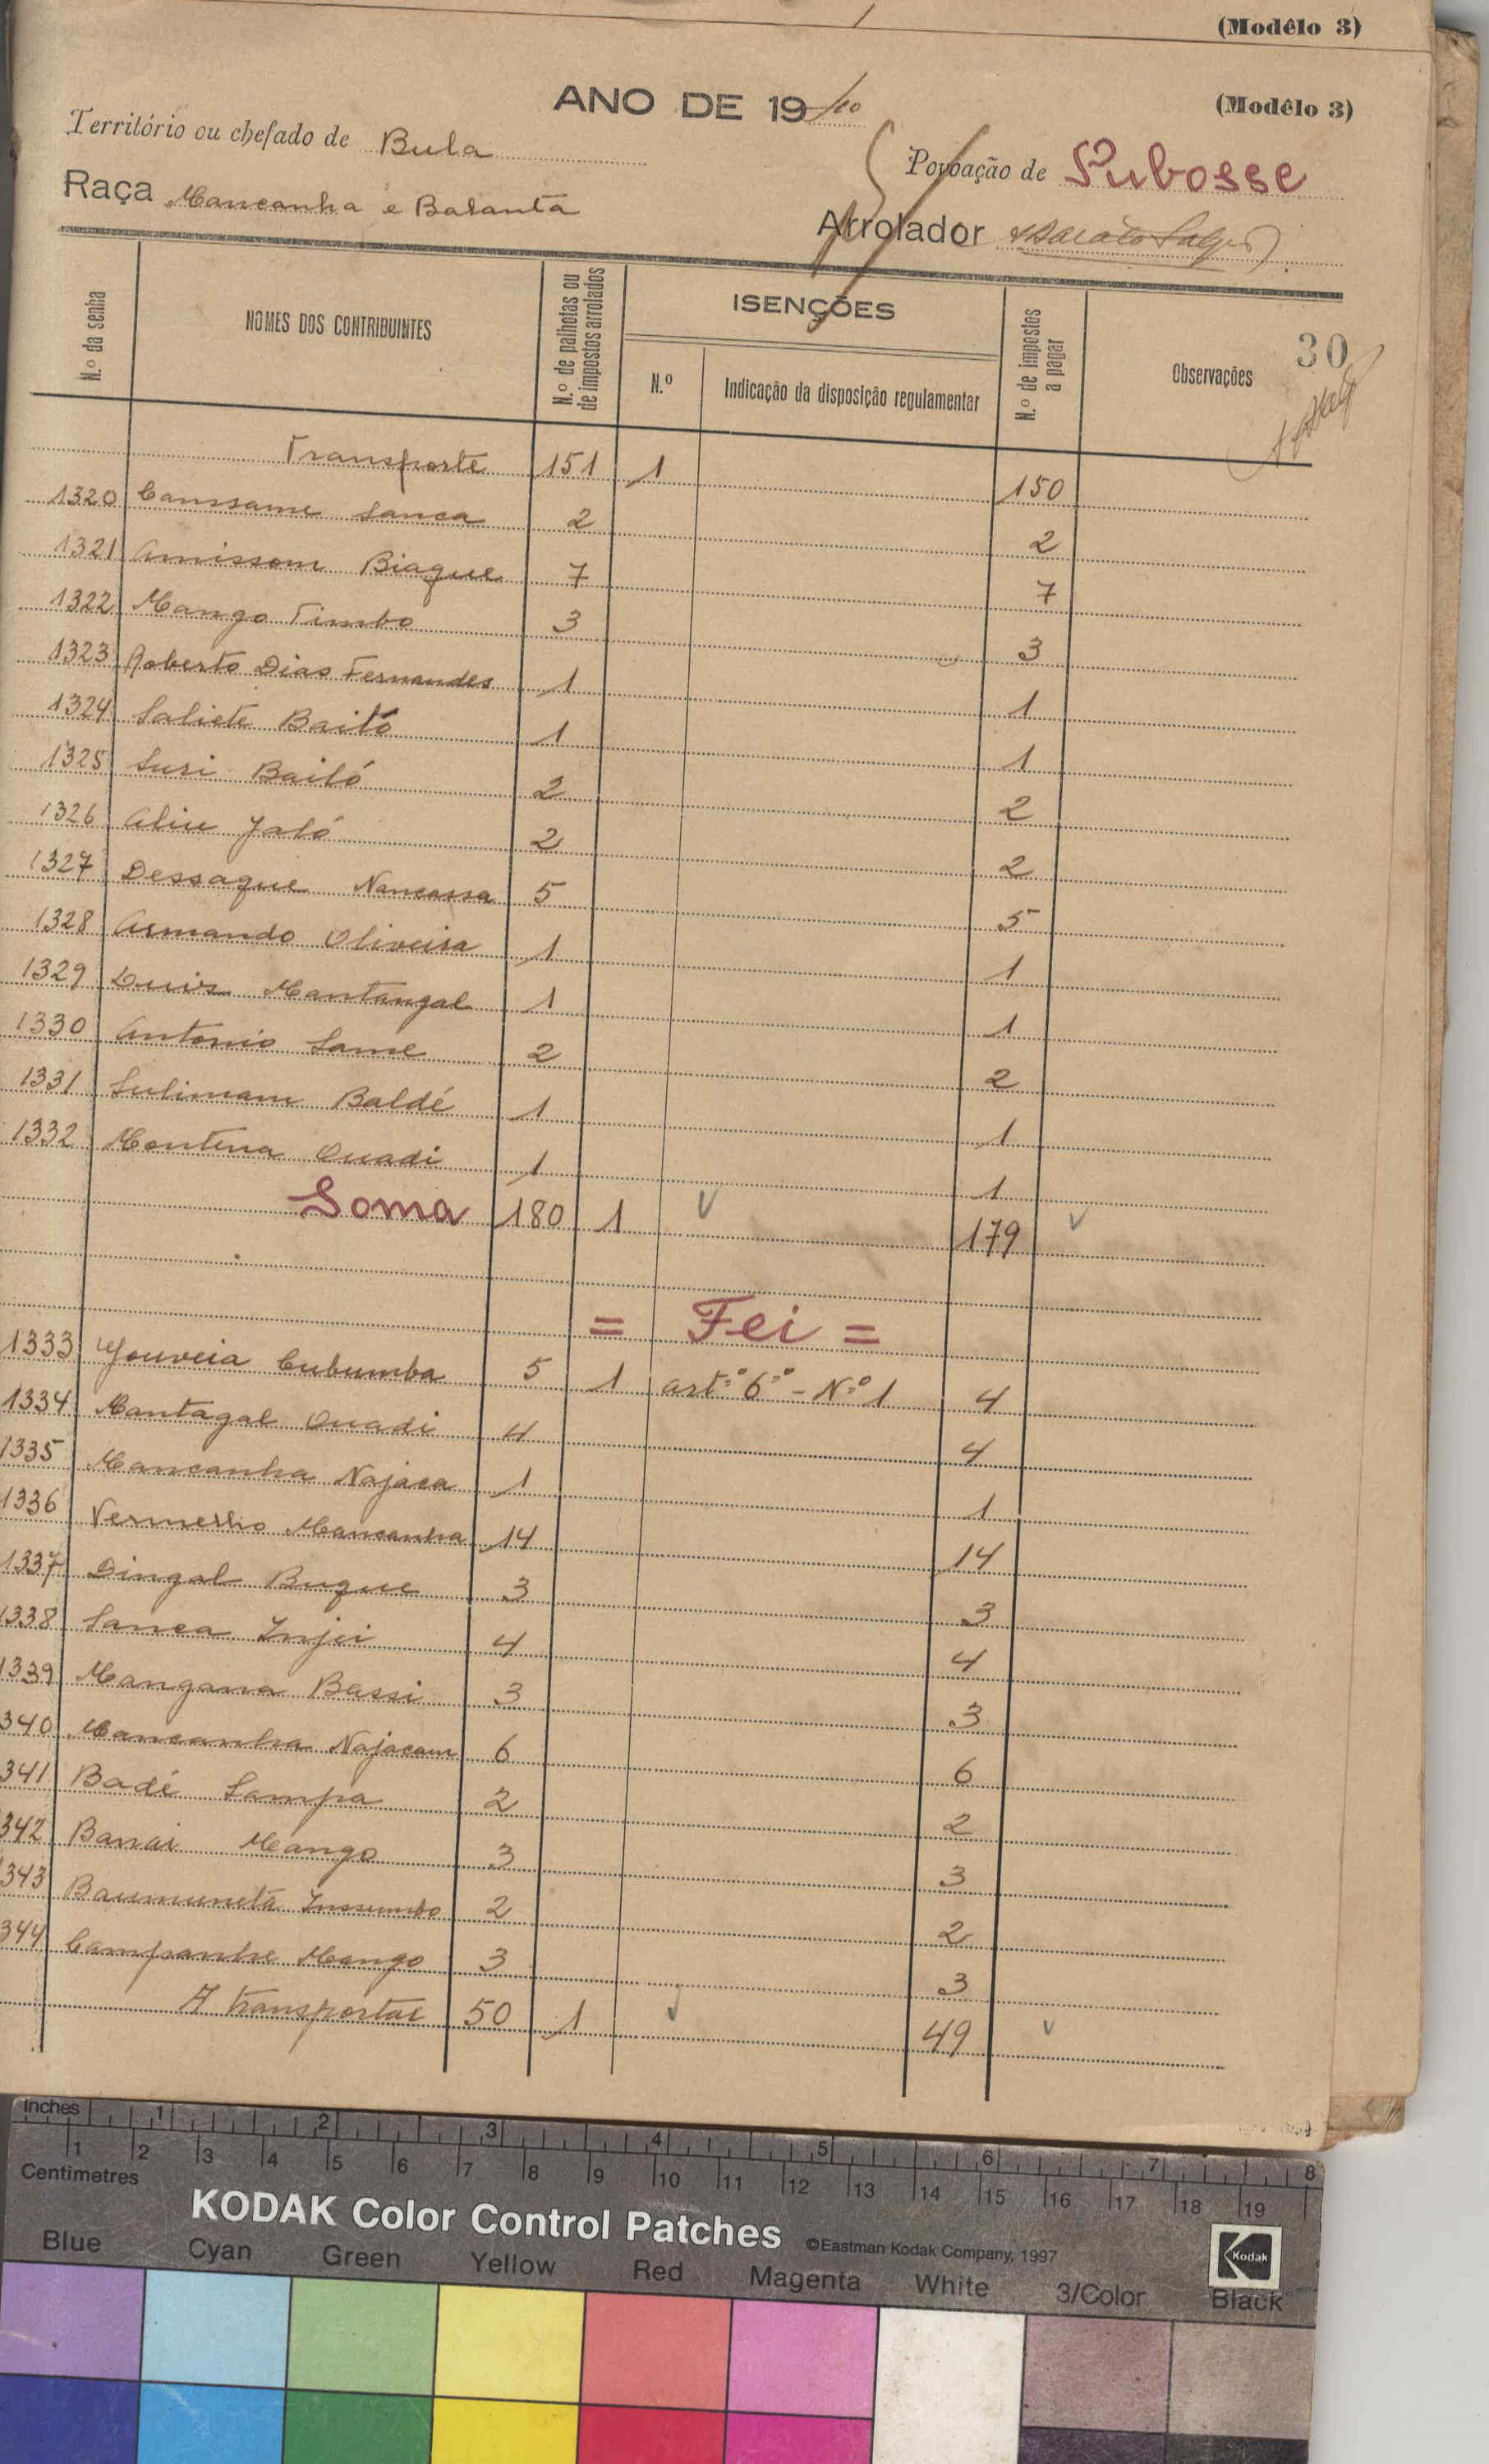 (Modêlo 3)
ANO DE 19
(Modêlo 3)
Território ou chefado de Bula
Povoação de Pubosse
Raça Mancanha e Balanta
Arrolador
N.º da senha
NOMES DOS CONTRIBUINTES
N.º de palhotas ou de impostos arrolados
ISENÇÕES
N.º
Indicação da disposição regulamentar
N.º de impostos a pagar
Observações
30
Transporte 151 1 150
1320 Canssame Sanca 2 2
1321 Amissom Biague 7 7
1322 Mango Timbo 3 3
1323 Roberto Dias Fernandes 1 1
1324 Saliete Bailó 1 1
1325 Suri Bailó 2 2
1326 Aliu Jaló 2 2
1327 Dessaque Nancassa 5 5
1328 Armando Oliveira 1 1
1329 Luiz Mantangal 1 1
1330 Antonio Same 2 2
1331 Sulimam Baldé 1 1
1332 Montena Quadi 1 1
Soma 180 1 179
= Fei =
1333 Gouveia Cubumba 5 1 artº 6º - Nº 1 4
1334 Mantagal Quadi 4 4
1335 Mancanha Najaca 1 1
1336 Vermelho Mancanha 14 14
1337 Dingal Buque 3 3
1338 Sanca Injei 4 4
1339 Mangana Bassi 3 3
340 Mancanha Najacam 6 6
341 Badé Sampa 2 2
342 Banai Mango 3 3
343 Baumunetá Inssumbo 2 2
344 Campanhe Mango 3 3
A transportar 50 1 49
Inches 1 2 3 4 5 6 7 8
Centimetres 1 2 3 4 5 6 7 8 9 10 11 12 13 14 15 16 17 18 19
KODAK Color Control Patches ©Eastman Kodak Company, 1997
Kodak
Blue Cyan Green Yellow Red Magenta White 3/Color Black